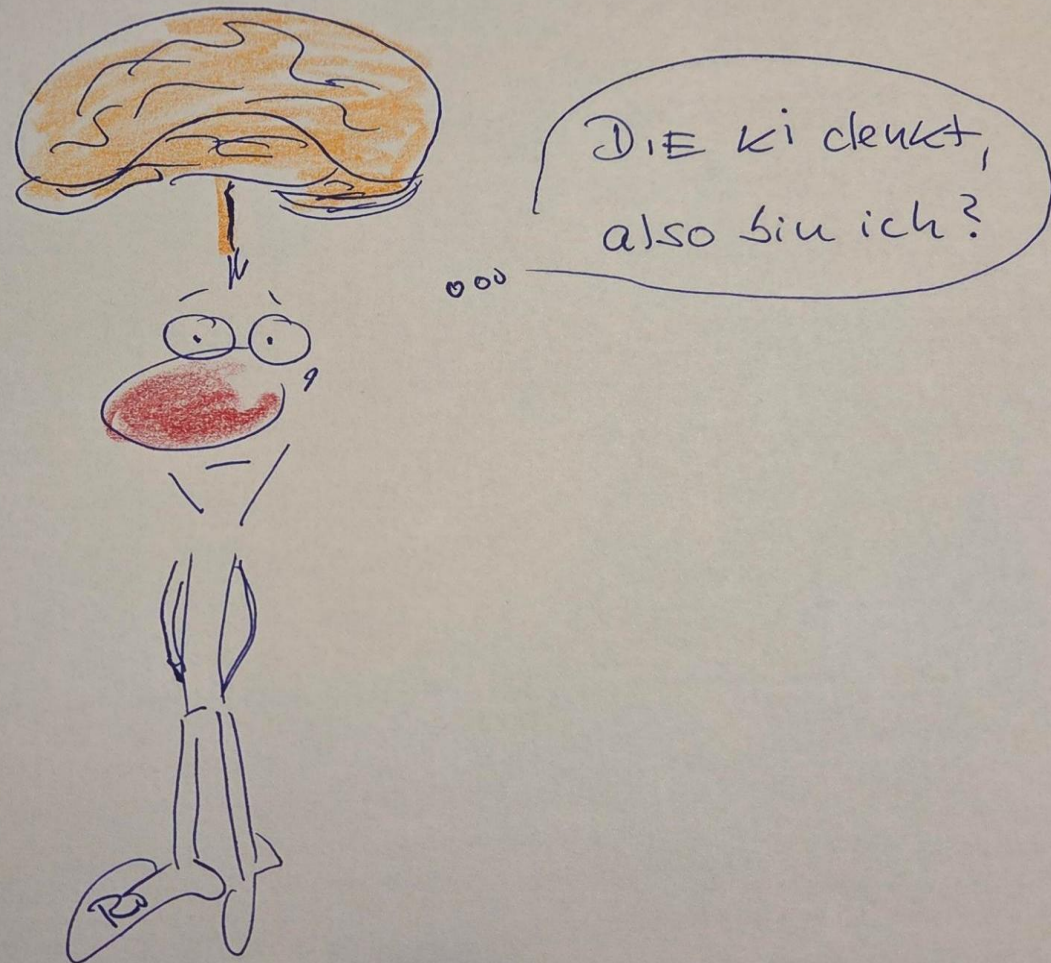 DIE Ki denkt,
also bin ich?